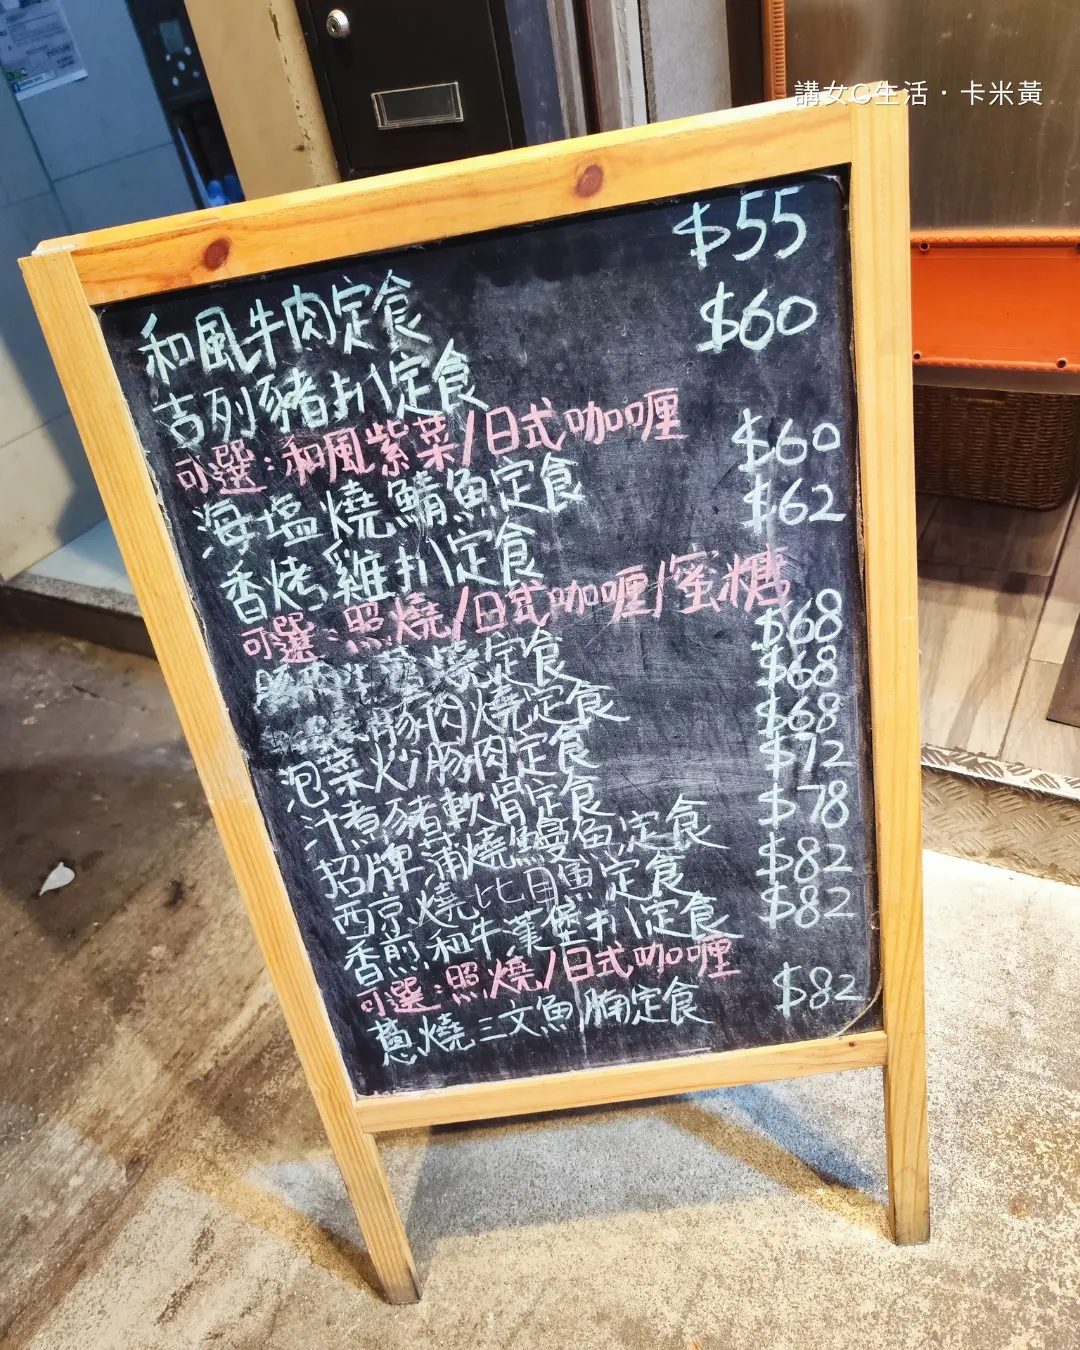 講女G生活·卡米黃
$55
和風牛肉定食
$60
吉列豬扒定食
可選:和風紫菜/日式咖喱
$60
海塩燒鯖魚定食
$62
香烤雞扒定食
可選:照燒/日式咖喱/蜜糖
$68
燒定食
$68
豚肉燒定食
$68
泡菜炒豚肉定食
$72
汁煮豬軟骨定食
$78
招牌蒲燒鰻魚定食
$82
西京燒比目魚定食
$82
香煎和牛漢堡扒定食
可選:照燒/日式咖喱
$82
蔥燒三文魚腩定食